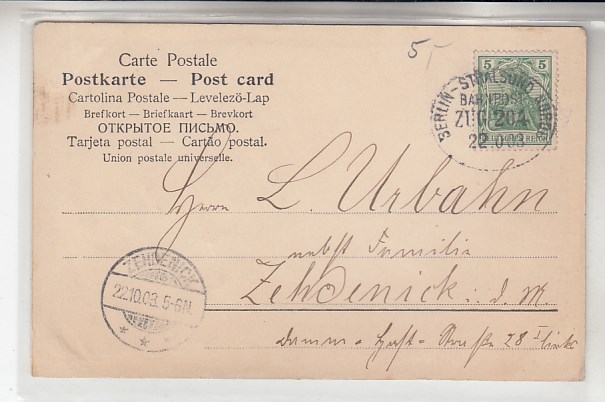 Carte Postale
Postkarte — Post card
Cartolina Postale — Levelező-Lap
Brefkort — Briefkaart — Brevkort
ОТКРЫТОЕ ПИСЬМО.
Tarjeta postal — Cartão postal.
Union postale universelle.
5
5 5
BERLIN-STRALSUND
BAHNPOST
ZUG 204
DEUTSCHES REICH
Herrn L. Urbahn
nebst Familie
Zehdenick i. d. M.
Damm-Hast-Straße 28 I links
ZEHDENICK
22.10.03. 5-6N.